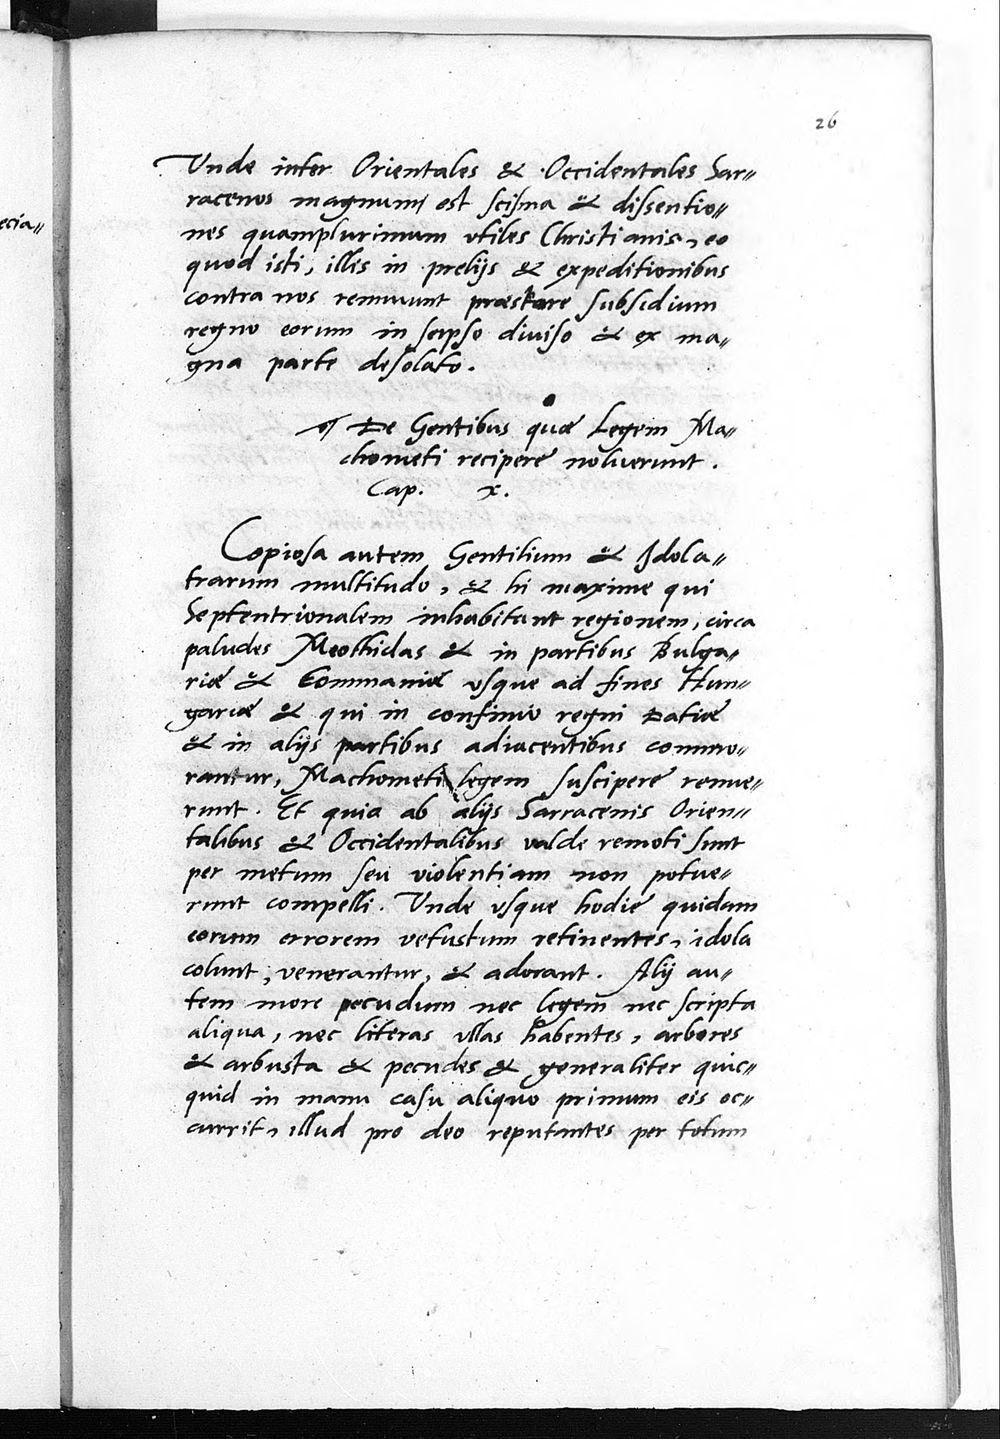 26
ecia〃
Unde inter Orientales & Occidentales Sar〃
racenos magnum est scisma & dissentio〃
nes quamplurimum vtiles Christianis, eo
quod isti, illis in prelijs & expeditionibus
contra nos rennuunt præstare subsidium
regno eorum in seipso diuiso & ex ma〃
gna parte desolato.
¶ De Gentibus quæ Legem Ma〃
chometi recipere noluerunt.
Cap. x.
Copiosa autem Gentilium & Idola〃
trarum multitudo, & hi maxime qui
Septentrionalem inhabitant regionem, circa
paludes Meothidas & in partibus Bulga〃
riæ & Commaniæ vsque ad fines Hun〃
gariæ & qui in confinio regni Datiæ
& in alijs partibus adiacentibus commo〃
rantur, Machometi legem suscipere renue〃
runt. Et quia ab alijs Sarracenis Orien〃
talibus & Occidentalibus valde remoti sunt
per metum seu violentiam non potue〃
runt compelli. Unde vsque hodie quidam
eorum errorem vetustum retinentes, idola
colunt, venerantur, & adorant. Alij au〃
tem more pecudum nec legem nec scripta
aliqua, nec literas vllas habentes, arbores
& arbusta & pecudes & generaliter quic〃
quid in manu casu aliquo primum eis oc〃
currit, illud pro deo reputantes per totum